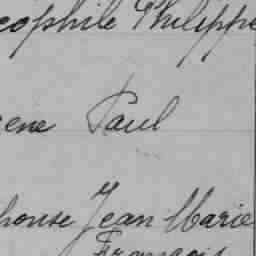 éophile Philippe
ene Paul
honse Jean Marie
François